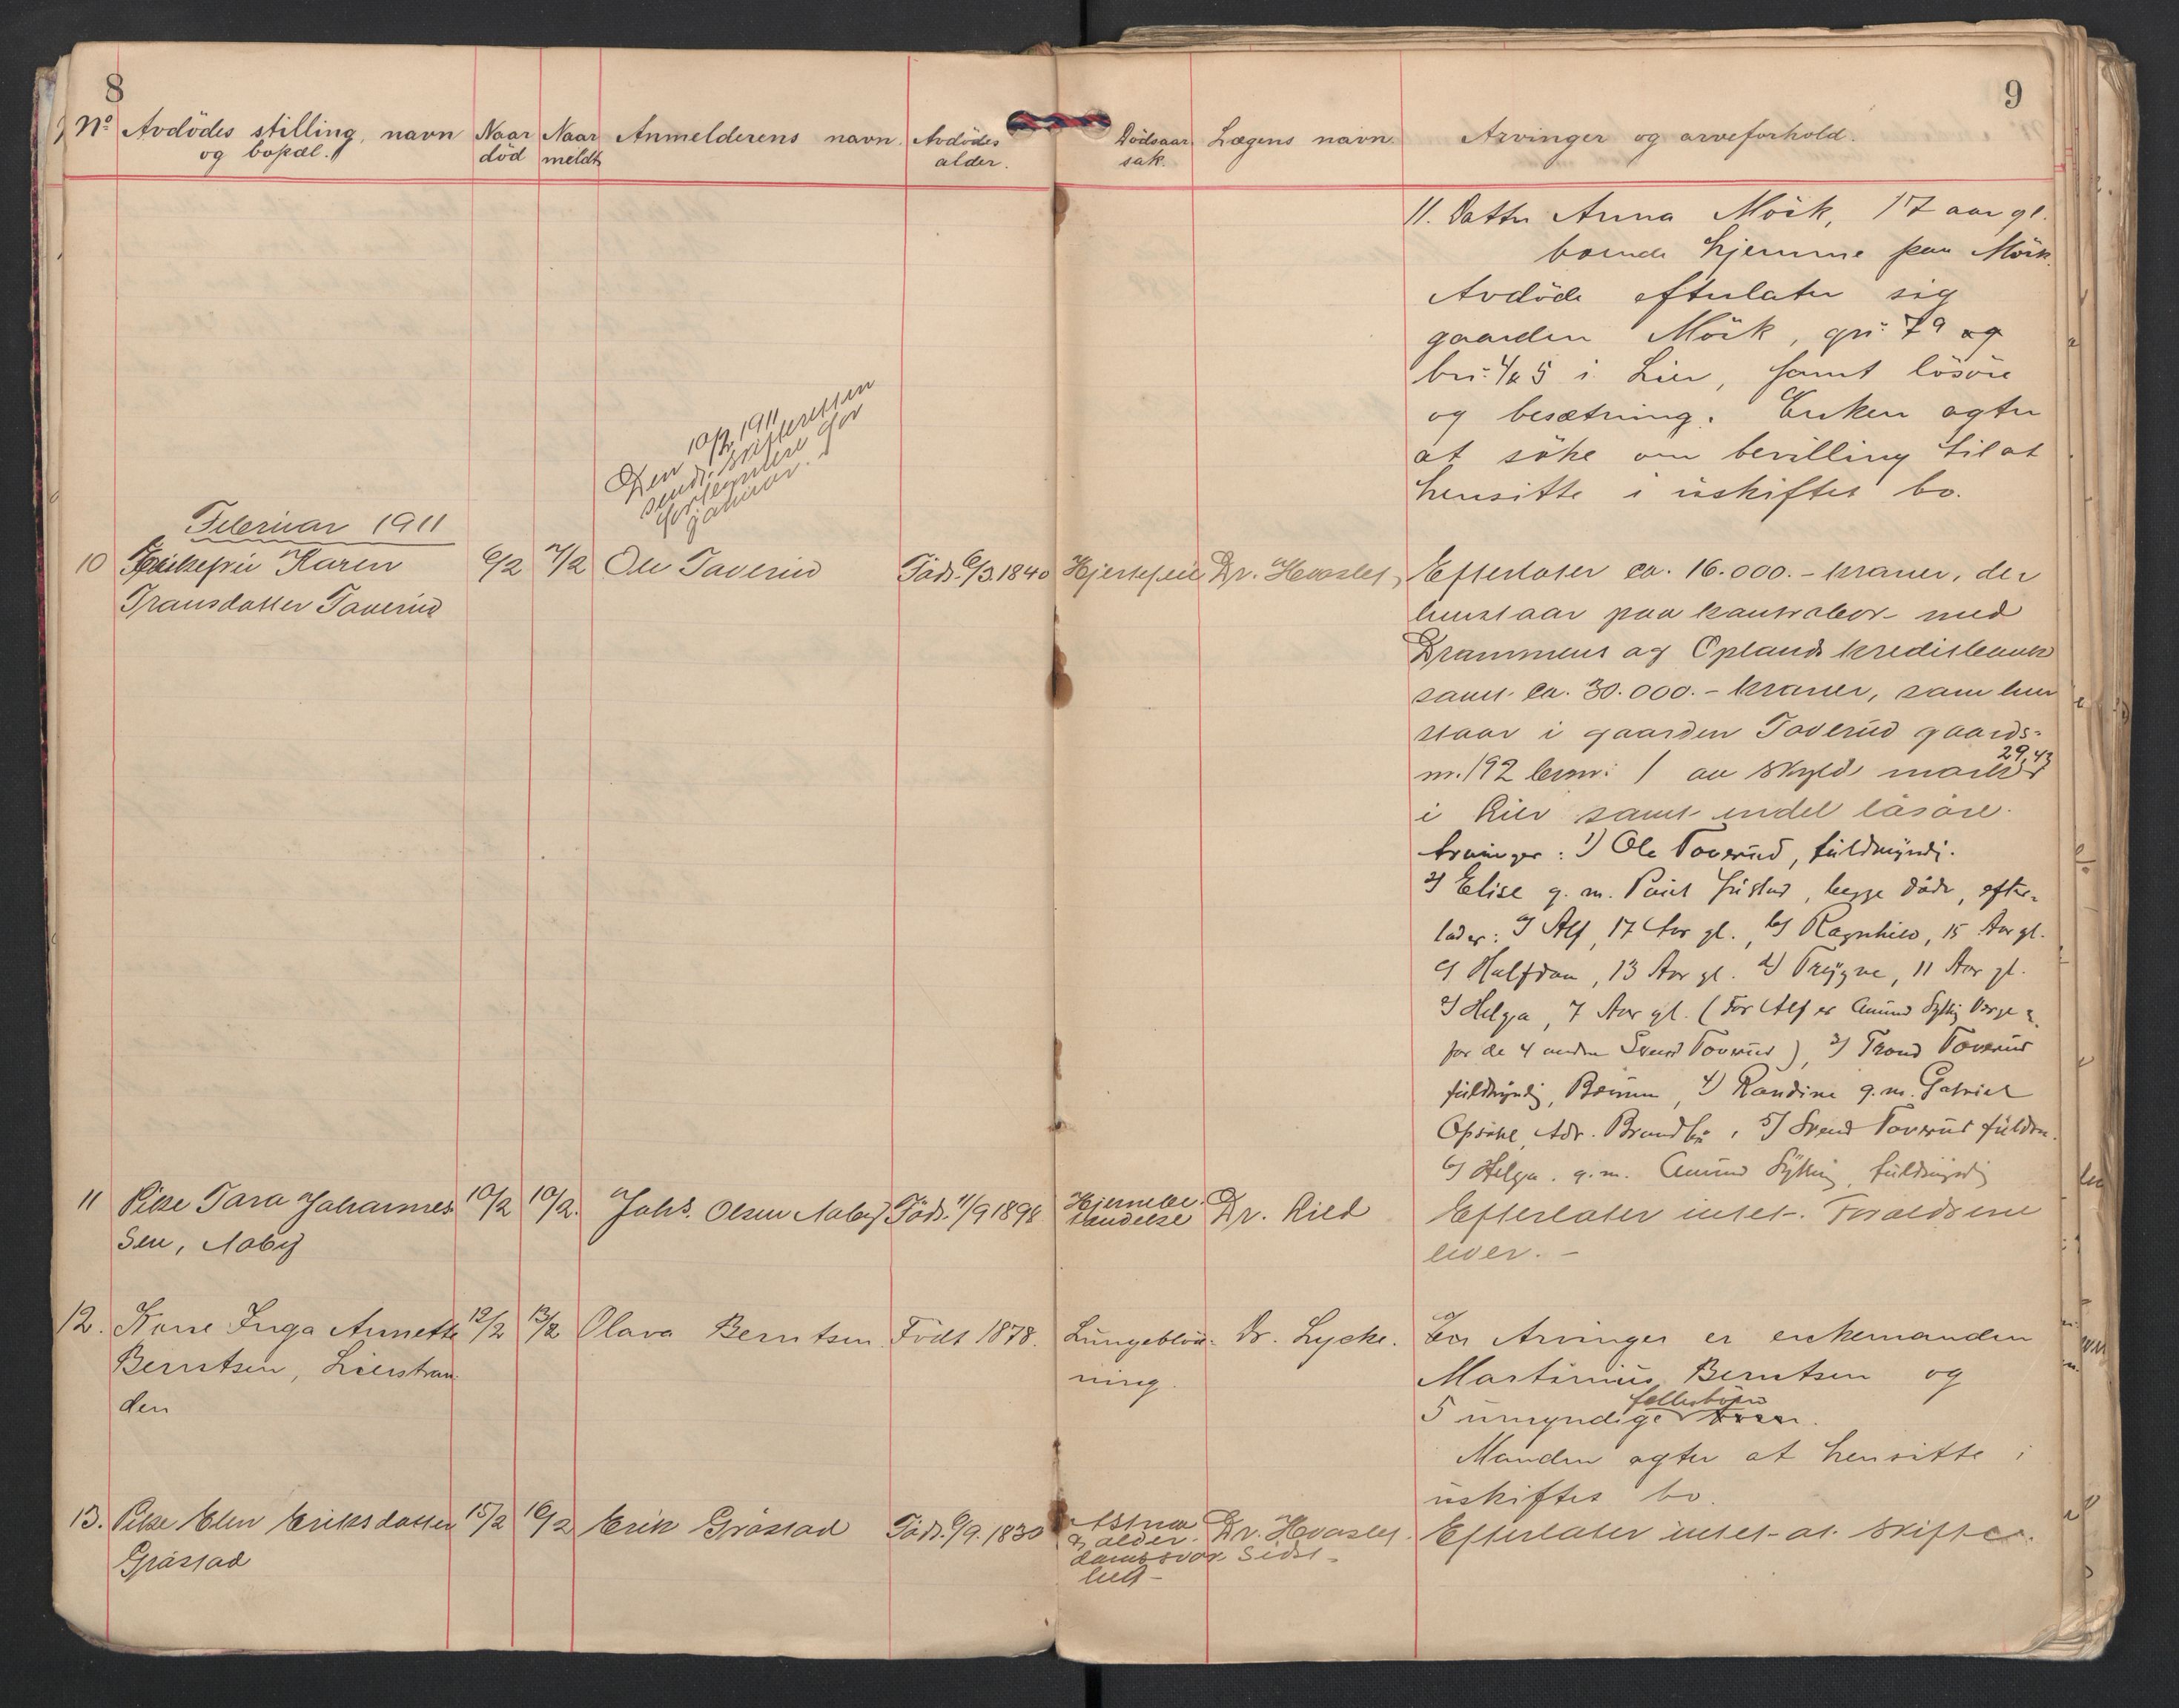 8
9
No Avdödes stilling, navn Naar Naar Anmelderens navn. Avdödes Dödsaar Lægens navn. Arvinger og arveforhold.
og bopæl. död meldt alder. sak.
11. Datter Anna Mörk, 17 aar gl.
boende hjemme paa Mörk.
Avdöde efterlater sig
gaarden Mörk, gr. 79 og
br. 4 & 5 i Lier, samt lösöre
og besætning. Enken agter
at söke om bevilling til at
hensitte i uskiftet bo.
Den 10/2 1911
sendt skifteretten
fortegnelse for
januar.
Februar 1911
10 Enkefru Karen 6/2 7/2 Ole Taverud Född. 6/3.1840 Hjertefeil Dr. Hvoslef, Efterlater ca. 16.000.- kroner, der
Transdatter Taverud henstaar paa kontrabok med
Drammens og Oplands kreditbank
samt ca. 30.000.- kroner, som hun
staar i gaarden Toverud gaards-
nr. 192 brnr: 1 av skyld mark 29,43
i Lier samt endel lösöre.
Arvinger: 1) Ole Toverud, fuldmyndi.
2) Elise g. m. Paul Justad, begge döde, efter-
lader: a) Alf, 17 Aar gl., b) Ragnhild, 15 Aar gl.
c) Halfdan, 13 Aar gl. d) Trygve, 11 Aar gl.
e) Helga, 7 Aar gl. (For Alf er Amund Sylling Verge &
for de 4 andre Svend Toverud), 3) Trond Toverud
fuldmyndig, Bærum, 4) Randine g. m. Gabriel
Opsahl, Adr. Brandbu, 5) Svend Toverud fuldm.
6) Helga. g. m. Amund Sylling, fuldmyndig
11 Pike Tara Johannes 10/2 10/2. Johs. Olsen Aaby Född. 11/9 1898 Hjernebe- Dr. Ried Efterlater intet. Forældrene
sen, Aaby tændelse lever. -
12. Kone Inga Annette 12/2 13/2 Olava Berntsen. Född 1878. Lungeblöd- Dr. Lycke. Eur Arvinger er enkemanden
Berntsen, Lierstran ning. Martinius Berntsen og
den 5 umyndige fellesbörn.
Manden agter at hensitte i
uskiftet bo.
13. Pike Elen Eriksdatter 15/2 16/2 Erik Gråstad Född. 6/9.1830 Astma Dr. Hvoslef. Efterlater intet at skifte.
Gråstad & alder-
domssvak Sidst-
het-